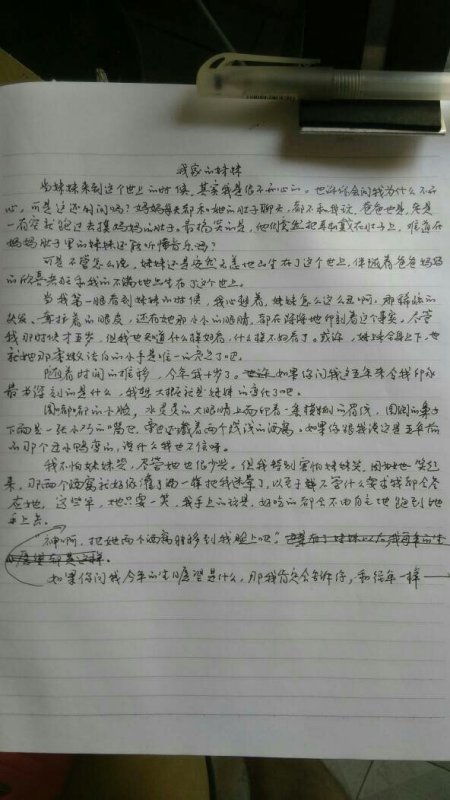 我家的妹妹
当妹妹来到这个世上的时候,其实我是倍不开心的。也许你会问我为什么不开
心,可是这还用问吗?妈妈每天都和她的肚子聊天,都不和我说,爸爸也是,老是
一有空就跑过去摸妈妈的肚子。最搞笑的是,他们竟然把耳机戴在肚子上,难道在
妈妈肚子里的妹妹还能听懂音乐吗?
可是不管怎么说,妹妹还是安然无恙地出生在了这个世上,伴随着爸爸妈妈
的欣喜和我的不满地出生在了这个世上。
当我第一眼看到妹妹的时候,我心想着,妹妹怎么这么丑啊,那稀疏的
头发,耷拉着的眼皮,还有她那小小的眼睛,都在深深地印刻着这个事实。尽管
我那时候才五岁,但我也知道什么样好看,什么样不好看了。或许,妹妹全身上下,也
就她那嫩白的小手是唯一的亮点了吧。
随着时间的推移,今年我十岁了。如果你问我这五年来令我印象
最为深刻的是什么,我想大概就是妹妹的变化了吧。
圆嘟嘟的小脸,水灵灵的大眼睛上面印着一条模糊的眉线,圆圆的鼻子
下面是一张小巧的嘴巴,旁边还藏着两个浅浅的酒窝。如果你跟我说这是五年前
的那个丑小鸭变的,说什么我也不信呀。
我不怕妹妹哭,尽管她也很少哭。但我特别害怕妹妹笑,因为她一笑起
来,那两个酒窝就好像灌了酒一样把我迷晕了,以至于无论什么要求我都会答
应她,这些年,她只要一笑,我手上的玩具,好吃的都会不由自主地跑到她
手上去。
神啊,把她两个酒窝转移到我脸上吧!
如果你问我今年的生日愿望是什么,那我肯定会告诉你,和往年一样——